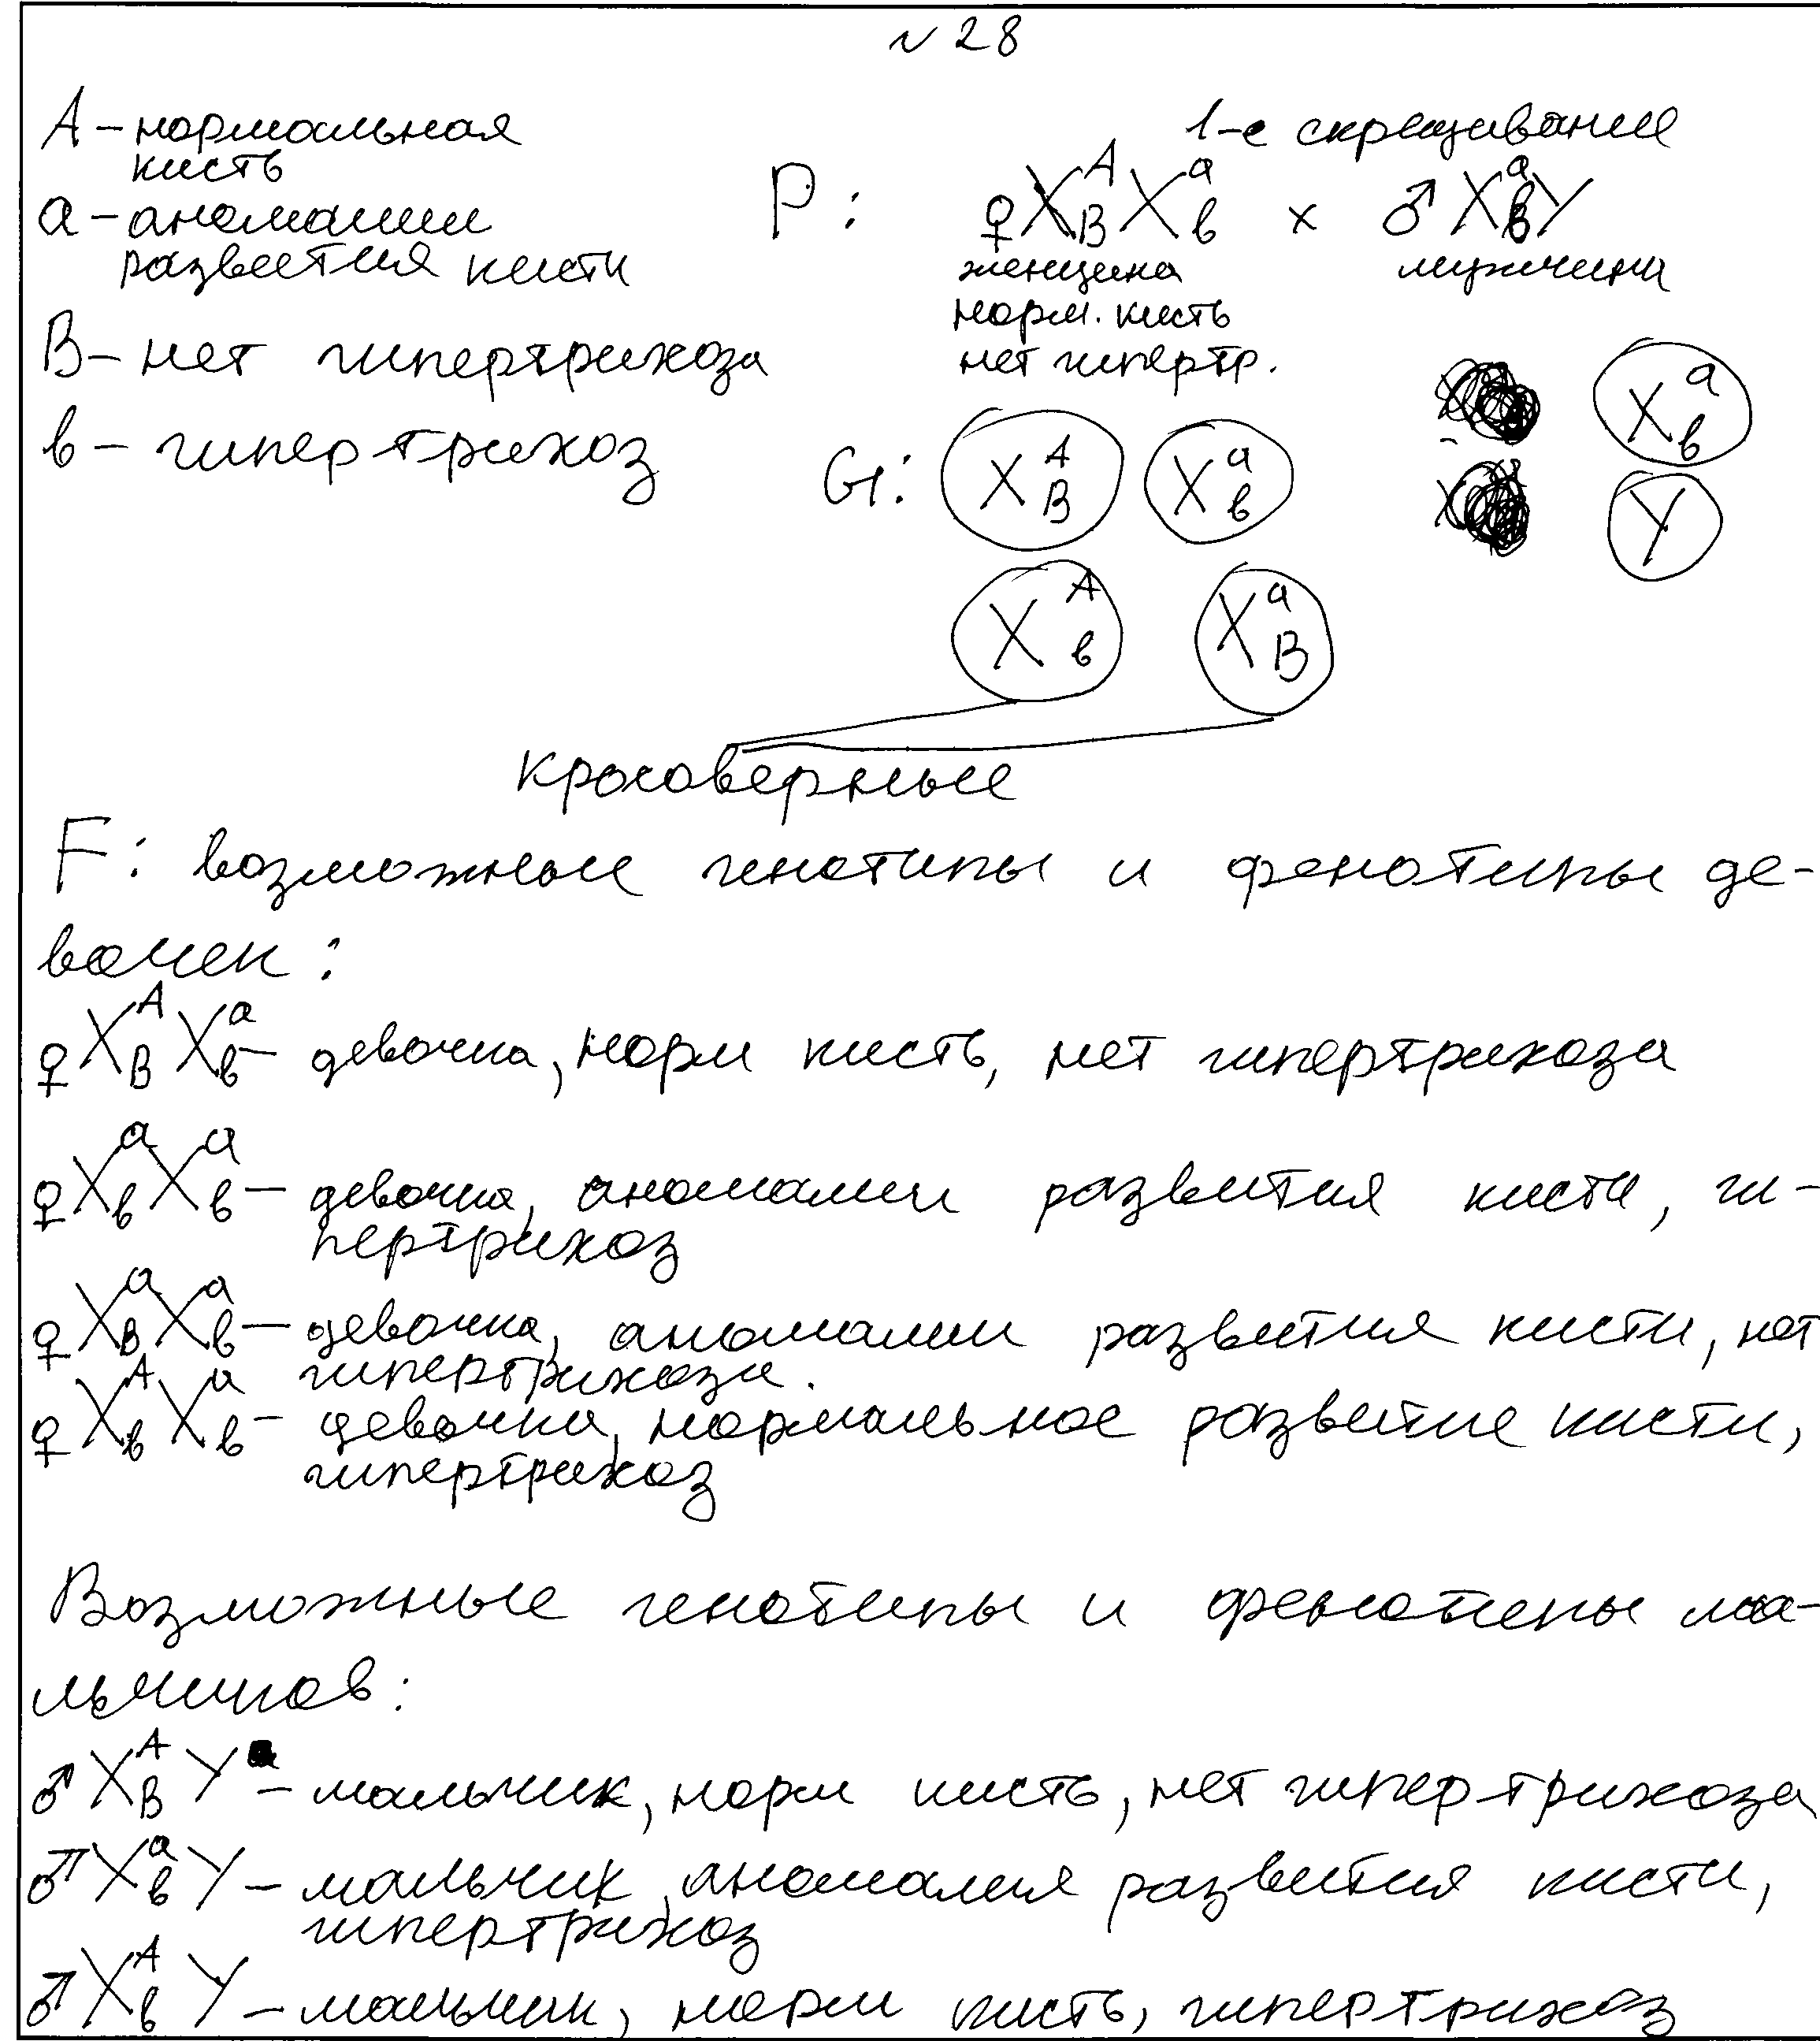 № 28
1-е скрещивание
А – нормальная
кисть
а – аномалии
развития кисти
В – нет гипертрихоза
в – гипертрихоз
P: ♀ X^A_B X^a_в × ♂ X^a_в Y
женщина мужчина
норм. кисть
нет гипертр.
G: X^A_B X^a_в X^a_в
X^A_в X^a_B Y
кроссоверные
F: возможные генотипы и фенотипы де-
вочек:
♀ X^A_B X^a_в – девочка, норм кисть, нет гипертрихоза
♀ X^a_в X^a_в – девочка, аномалии развития кисти, ги-
пертрихоз
♀ X^a_B X^a_в – девочка, аномалии развития кисти, нет
гипертрихоза.
♀ X^A_в X^a_в – девочка, нормальное развитие кисти,
гипертрихоз
Возможные генотипы и фенотипы ма-
льчиков:
♂ X^A_B Y – мальчик, норм кисть, нет гипертрихоза
♂ X^a_в Y – мальчик, аномалия развития кисти,
гипертрихоз
♂ X^A_в Y – мальчик, норм кисть, гипертрихоз